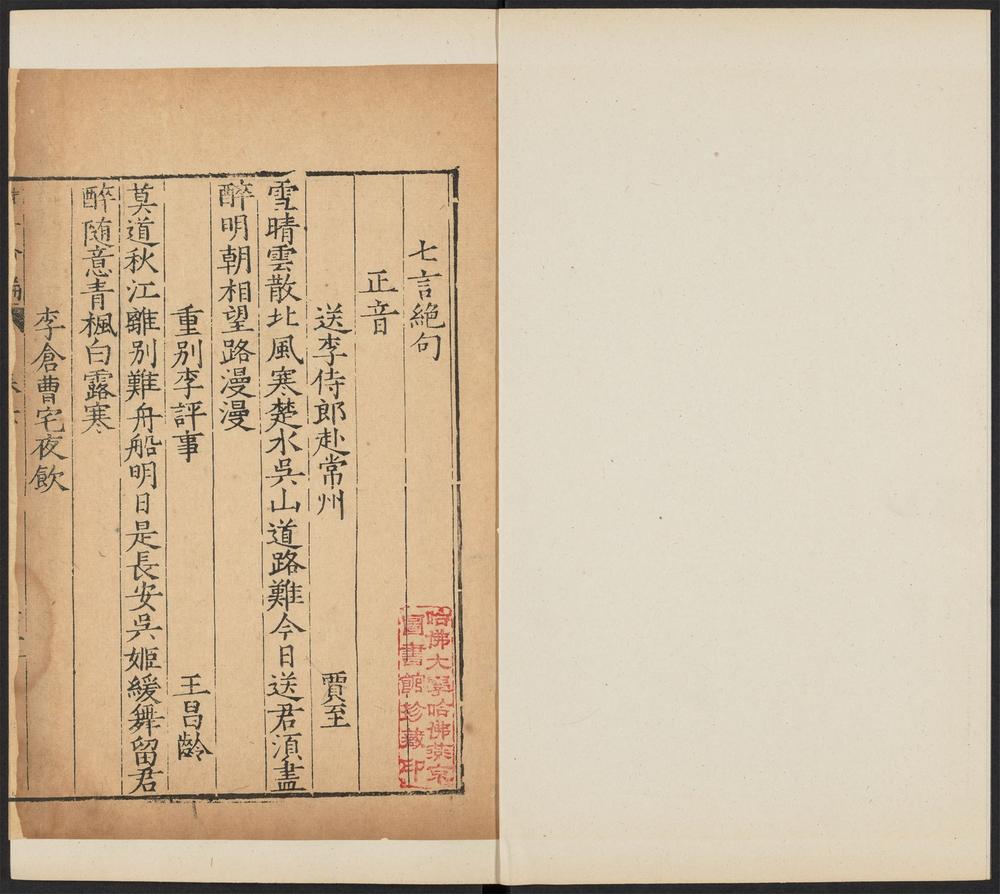 七言絕句
正音
送李侍郎赴常州 賈至
雪晴雲散北風寒楚水吳山道路難今日送君湏盡
醉明朝相望路漫漫
重別李評事 王昌齡
莫道秋江離別難舟船明日是長安吳姬緩舞留君
醉隨意青楓白露寒
李倉曹宅夜飲
哈佛大學哈佛燕京
圖書館珍藏印